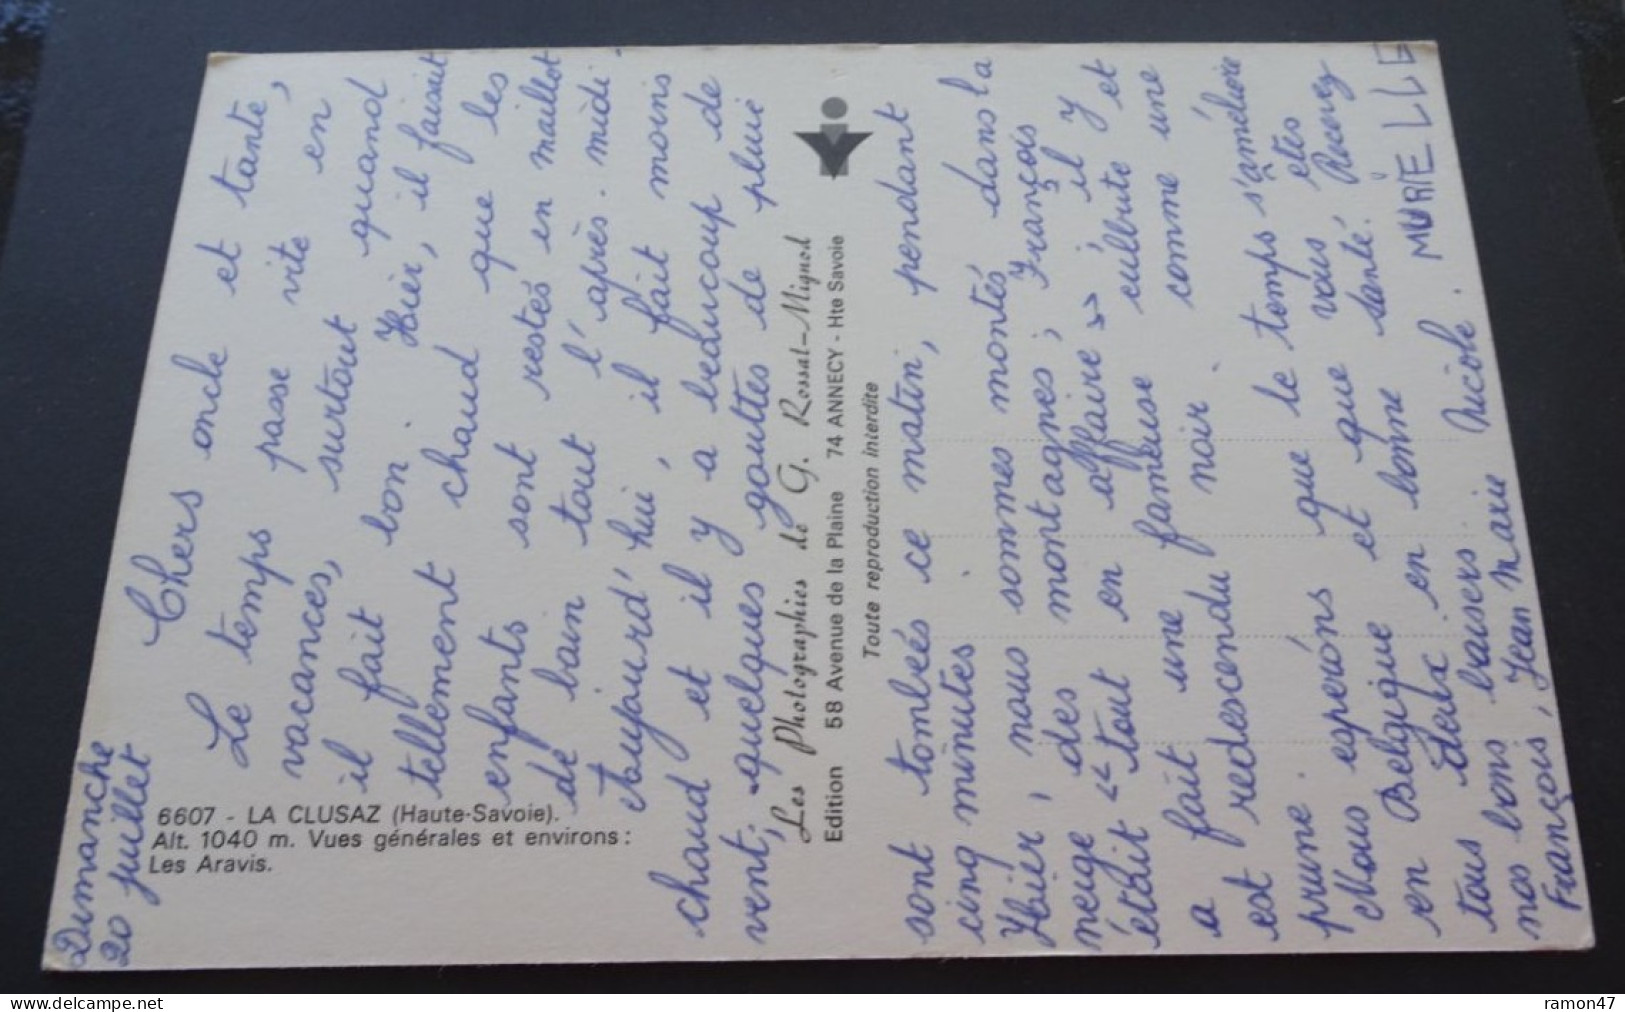 Dimanche
20 juillet
Chers oncle et tante,
Le temps passe vite en
vacances, surtout quand
il fait bon. Hier, il faisait
tellement chaud que les
enfants sont restés en maillot
de bain tout l'après-midi.
Aujourd'hui, il fait moins
chaud et il y a beaucoup de
vent; quelques gouttes de pluie
6607 - LA CLUSAZ (Haute-Savoie).
Alt. 1040 m. Vues générales et environs :
Les Aravis.
Les Photographies de G. Rossat-Mignod
Edition 58 Avenue de la Plaine 74 ANNECY - Hte Savoie
Toute reproduction interdite
sont tombées ce matin, pendant
cinq minutes.
Hier, nous sommes montés dans la
neige des montagnes; François
était « tout en affaire »; il y
a fait une fameuse culbute et
est redescendu noir comme une
prune.
Nous espérons que le temps s'améliore
en Belgique et que vous êtes
tous deux en bonne santé. Recevez
nos bons baisers. Nicole.
François, Jean Marie MURIELLE
delcampe.net
ramon47